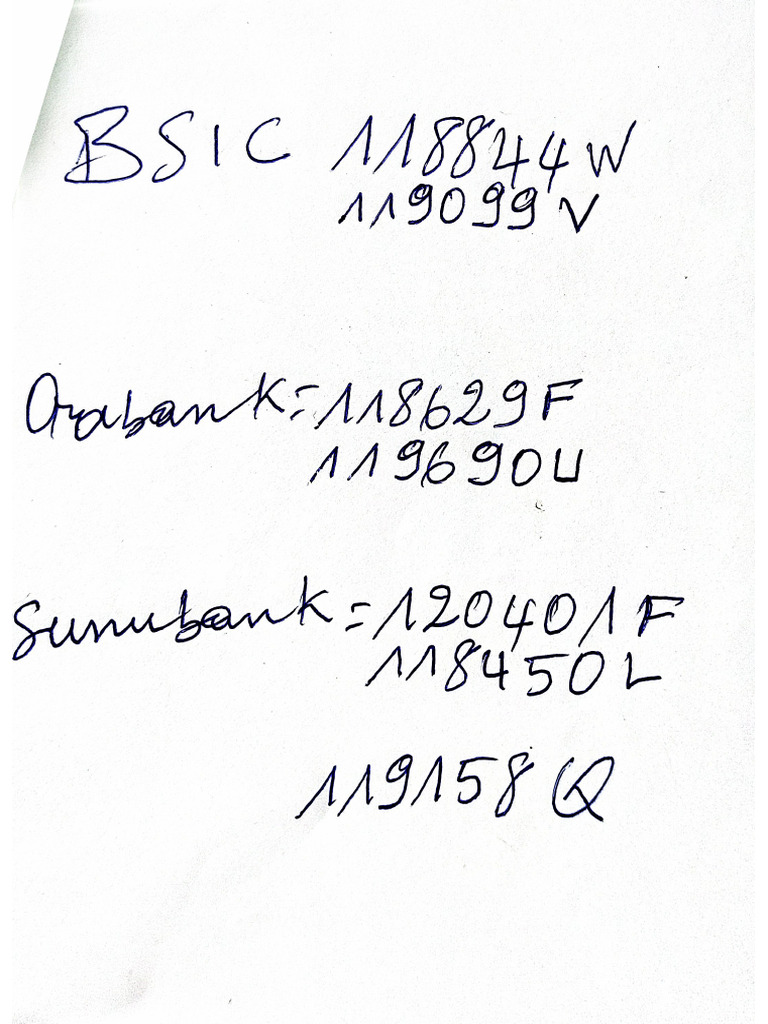 BSIC 118844W
119099V
Orabank=118629F
119690U
Sunubank=120401F
118450L
119158Q